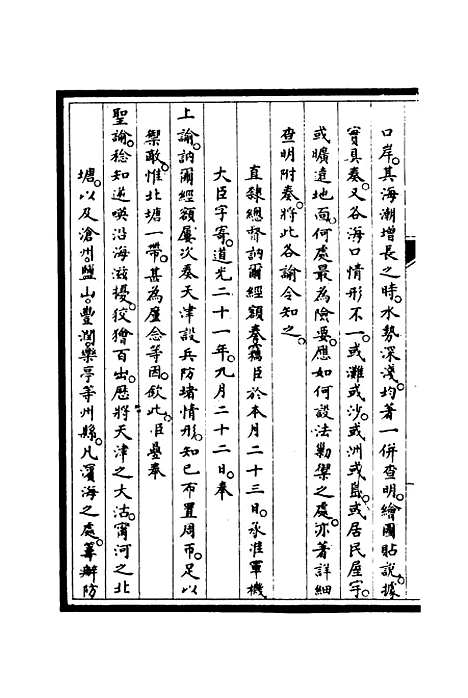 口岸。其海潮增長之時。水勢深淺。均著一併查明。繪圖貼說。據
實具奏。又各海口情形不一。或灘或沙。或洲或島。或居民屋宇。
或曠遠地面。何處最為險要。應如何設法勦禦之處。亦著詳細
查明附奏。將此各諭令知之。
直隸總督訥爾經額奏竊臣於本月二十三日。承准軍機
大臣字寄。道光二十一年。九月二十二日。奉
上諭。訥爾經額屢次奏天津設兵防堵情形。知已布置周帀。足以
禦敵。惟北塘一帶。甚為廑念等因。欽此。臣疊奉
聖諭。稔知逆㗆沿海滋擾。狡獪百出。歷將天津之大沽。甯河之北
塘。以及滄州。鹽山。豐潤。樂亭等州縣。凡濱海之處。籌辦防